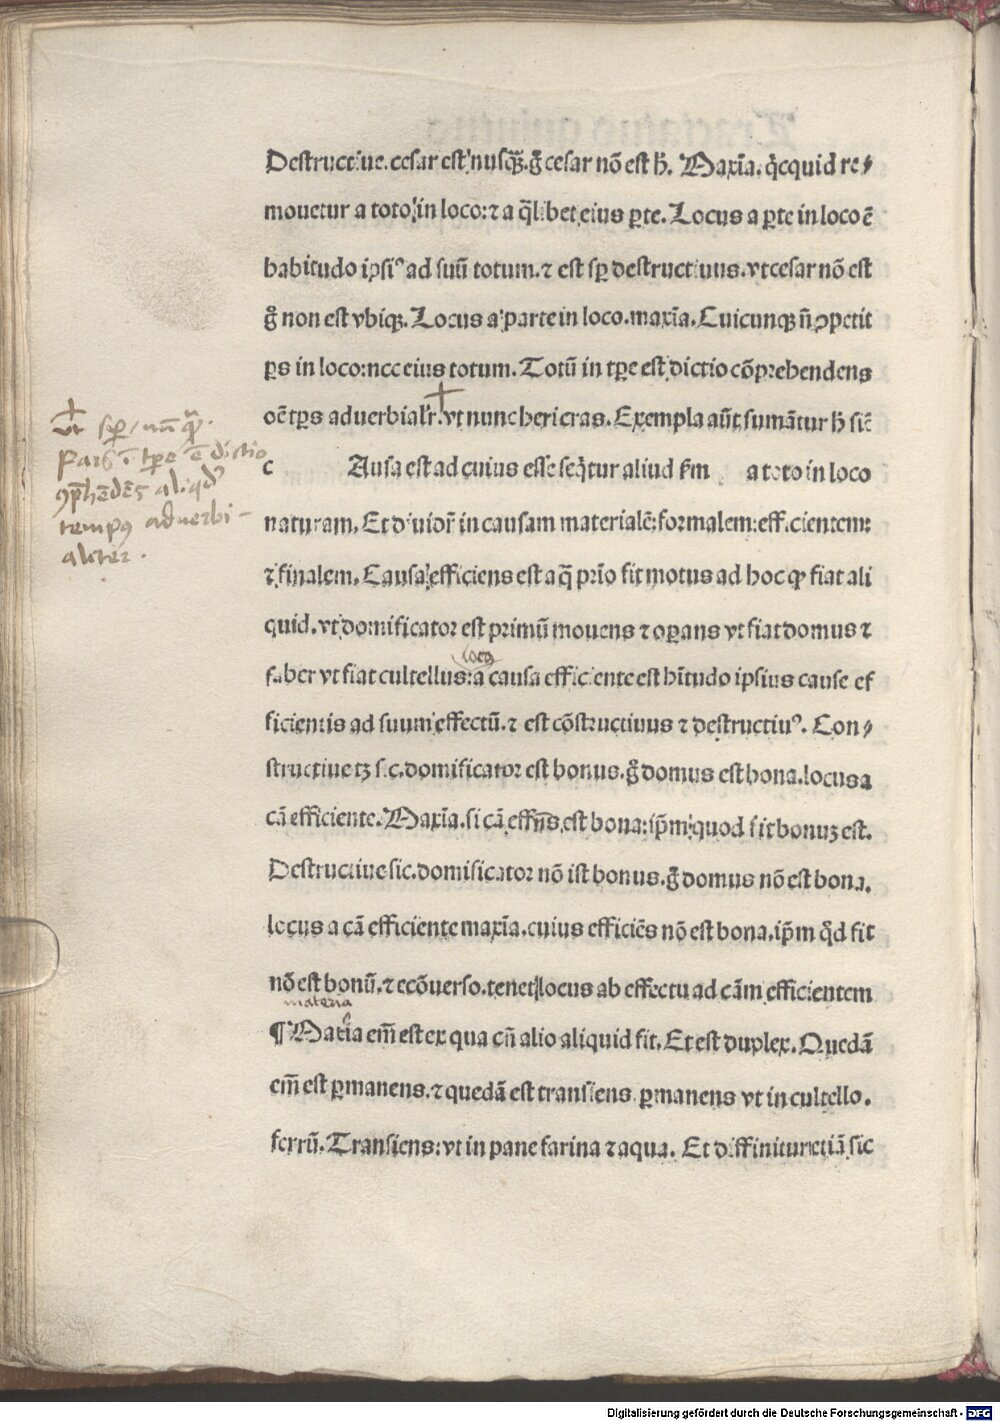 Destructiue. cesar est nusqȝ. g̊ cesar nō est h̄. Maxīa. q̊cquid re⸗
mouetur a toto in loco: ⁊ a q̄libet eius ꝑte. Locus a ꝑte in loco ē
habitudo ipsiꝰ ad suū totum. ⁊ est sꝑ destructiuus. vt cesar nō est
g̊ non est vbiqȝ. Locus a parte in loco. maxīa. Cuicunqȝ n̄ ꝯpetit
ꝑs in loco: nec eius totum. Totū in tꝑe est dictio cōprehendens
oē tꝑs aduerbialr̄. vt nunc heri cras. Exempla aūt sumātur h̄ sic̄
c Ausa est ad cuius esse seq̄tur aliud ẜm a toto in loco
naturam. Et diuidr̄ in causam materialē: formalem: efficientem:
⁊ finalem. Causa efficiens est a q̄ prīo fit motus ad hoc ꝙ fiat ali
quid. vt domificator est primū mouens ⁊ oꝑans vt fiat domus ⁊
faber vt fiat cultellus: a causa efficiente est hītudo ipsius cause ef
locꝰ
ficientis ad suum effectū. ⁊ est cōstructiuus ⁊ destructiuꝰ. Con⸗
structiue tȝ sic. domificator est bonus. g̊ domus est bona. locus a
cā efficiente. Maxīa. si cā effn̄s est bona: ip̄m quod fit bonuȝ est.
Destructiue sic. domificator nō ist bonus. g̊ domus nō est bona.
locus a cā efficiente maxīa. cuius efficiēs nō est bona. ip̄m q̊d fit
nō est bonū. ⁊ ecōuerso. tenet locus ab effectu ad cām efficientem
materia
¶ Matīa em̄ est ex qua cū alio aliquid fit. Et est duplex. Quedā
em̄ est ꝑmanens. ⁊ quedā est transiens ꝑmanens vt in cultello.
ferrū. Transiens: vt in pane farina ⁊ aqua. Et diffinitur etiā sic
vt sꝑ / nūqȝ.
Pars ī tꝑe ē dictio
ꝯp̄hēdēs aliqd̄
tempꝰ aduerbi-
aliter.
Digitalisierung gefördert durch die Deutsche Forschungsgemeinschaft - DFG